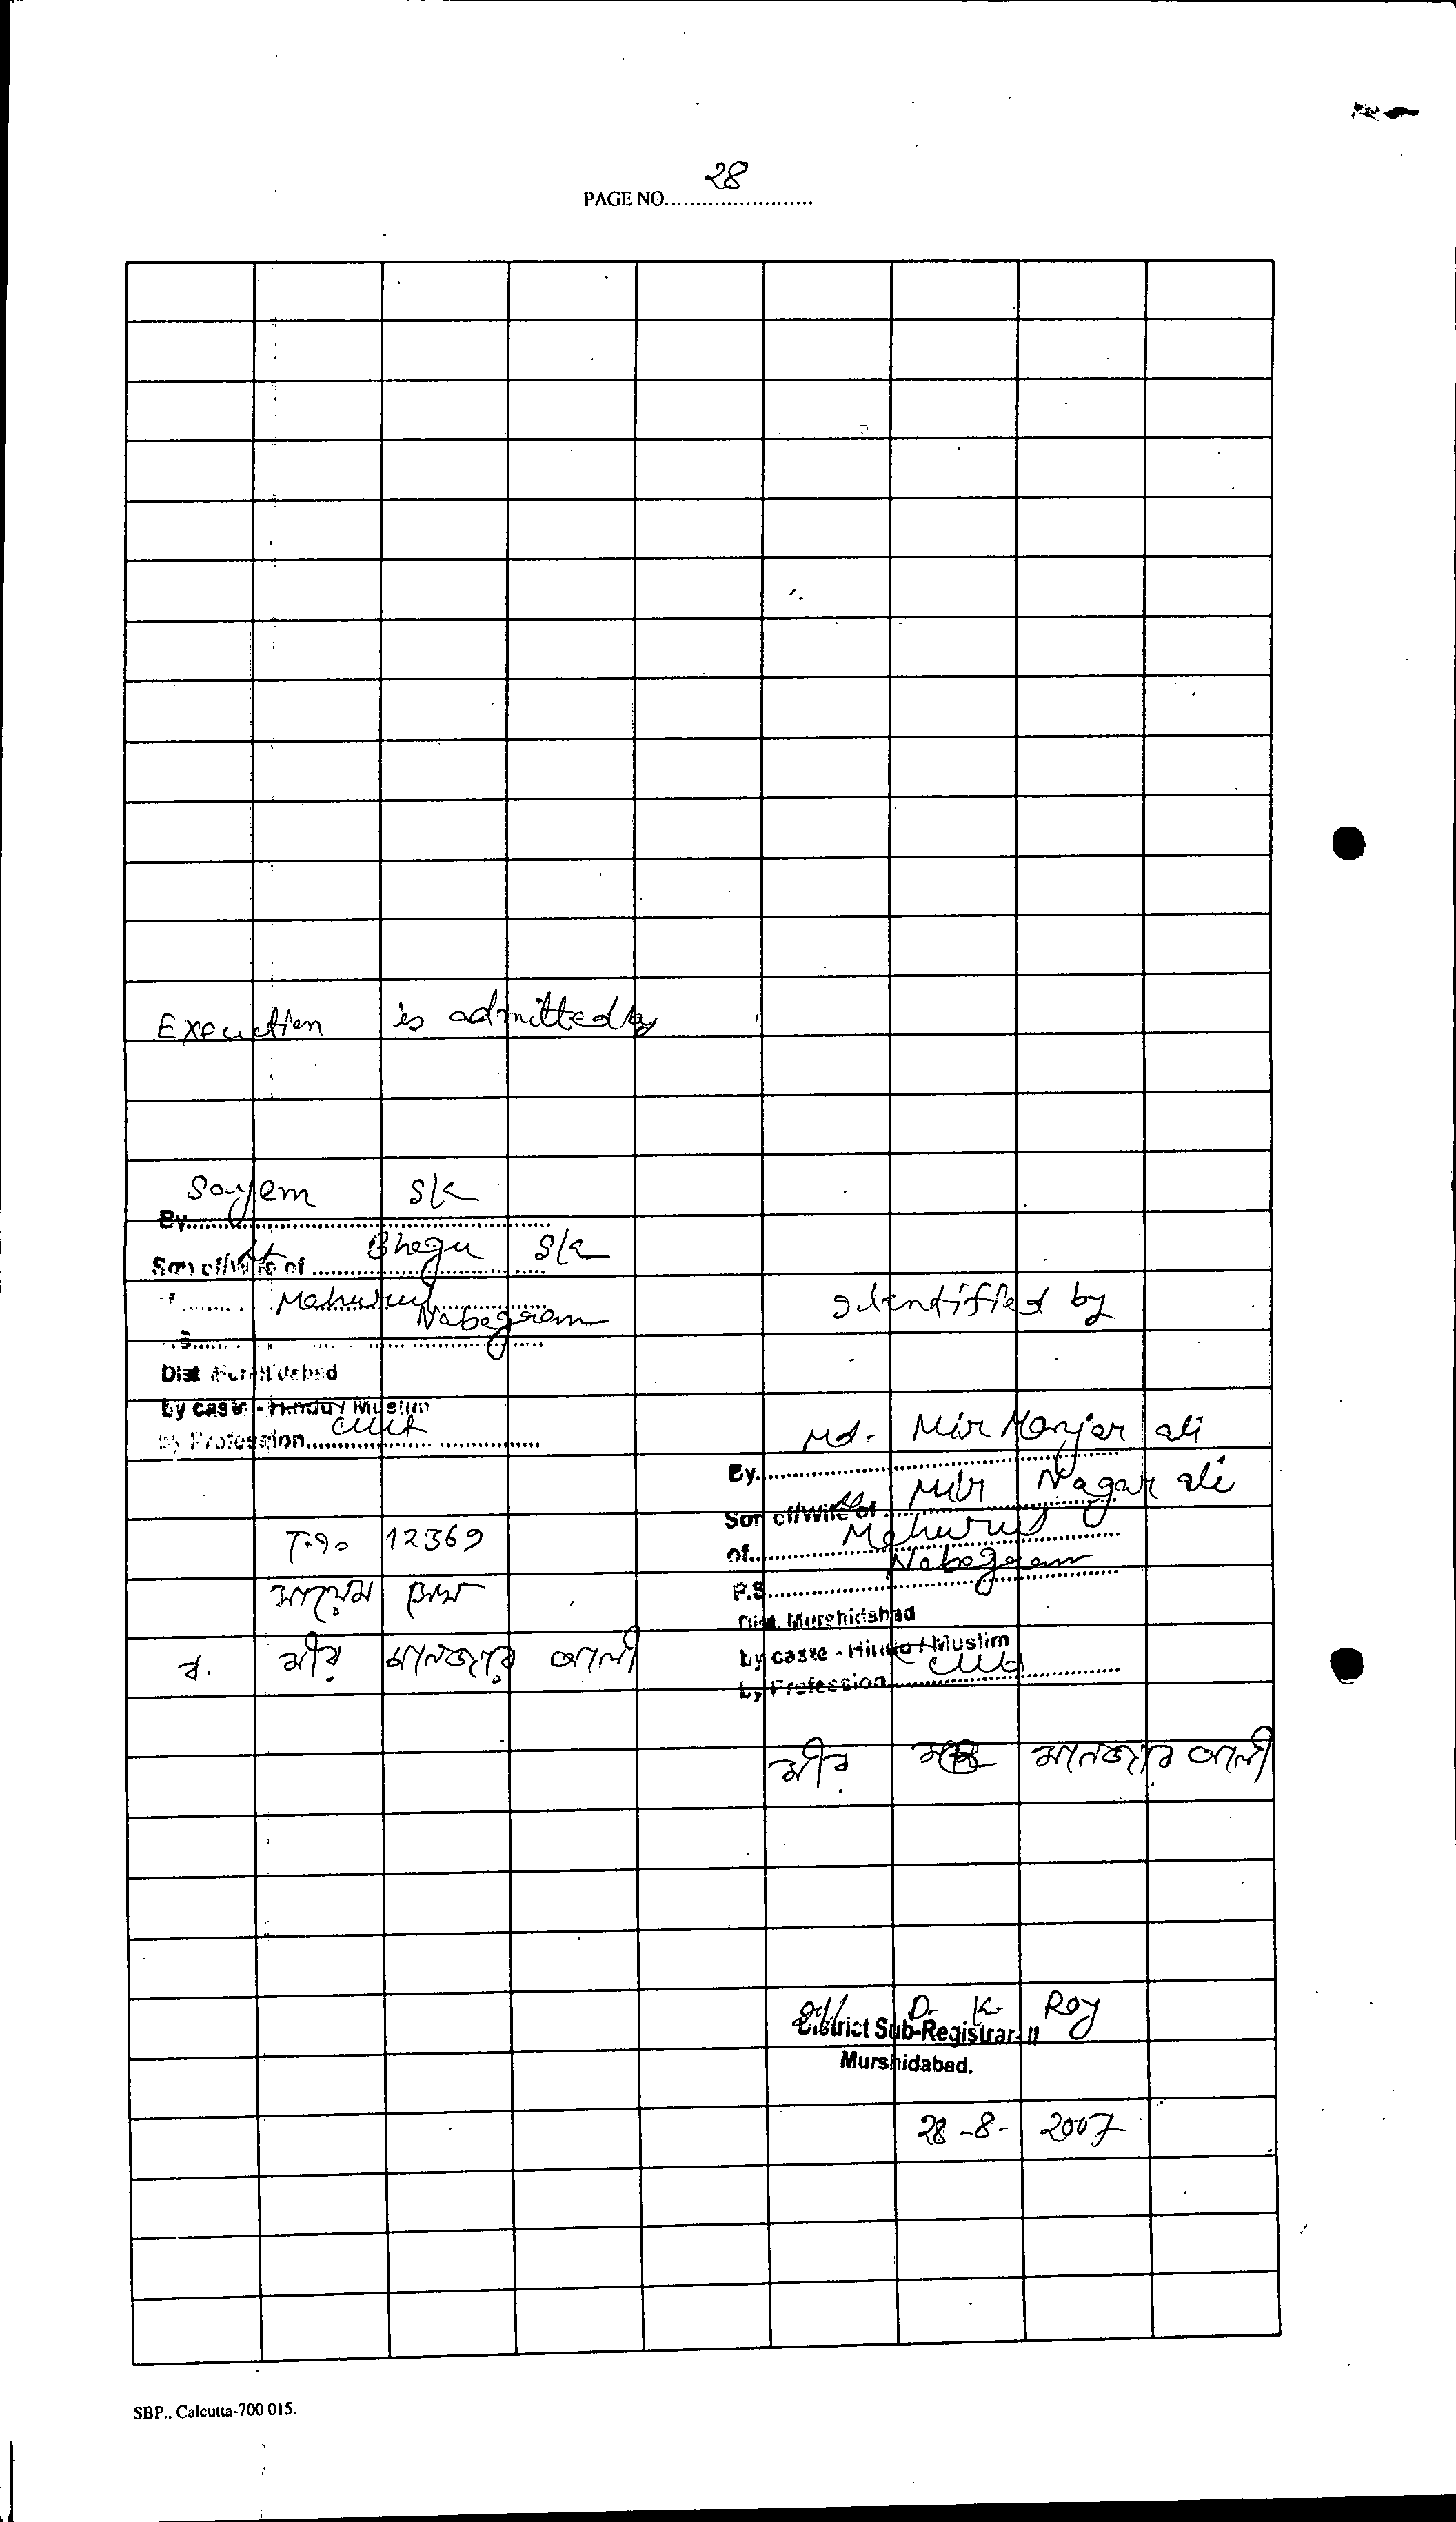 28
PAGE NO.........................
Execution is admitted by
Sayem Sk
By..........
Son of/Wife of Lt Bhegu Sk
Mahurul
Nabagram
Dist Murshidabad
by caste - Hindu / Muslim
by Profession.......... cult
Identified by
Md. Mir Manjar ali
By..........
Son of/Wife of Mir Nagar ali
of.......... Mahurul
P.S.......... Nabagram
Dist. Murshidabad
by caste - Hindu / Muslim
by Profession.......... cult
12369
সায়েম সেখ
ব. মীর মানজার আলী
মীর মানজার আলী
D. K. Roy
District Sub-Registrar- II
Murshidabad.
28-8-2007
SBP., Calcutta-700 015.